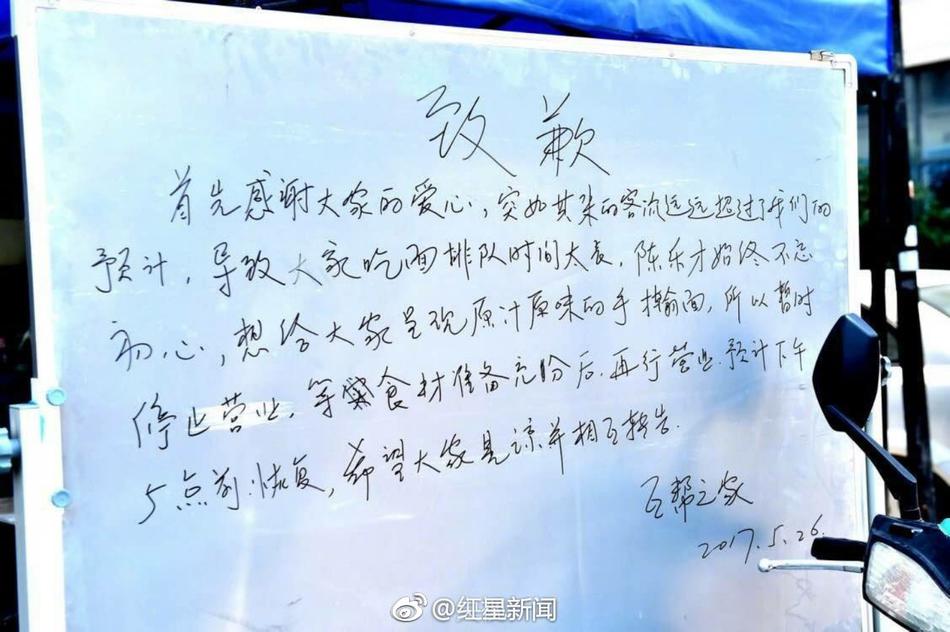 致歉
首先感谢大家的爱心,突如其来的客流远远超过了我们的
预计,导致大家吃面排队时间太长,陈乐才始终不忘
初心,想给大家呈现原汁原味的手擀面,所以暂时
停止营业,等食材准备充份后,再行营业.预计下午
5点前恢复,希望大家见谅并相互转告.
互帮之家
2017.5.26.
@红星新闻